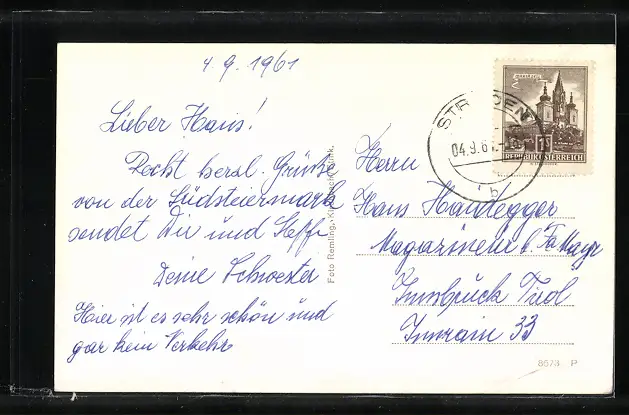 4.9.1961
Lieber Hans!
Recht herzl. Grüsse
von der Südsteiermark
sendet Dir und Steffi
Deine Schwester
Hier ist es sehr schön und
gar kein Verkehr
Foto Remling,
STRADEN
04.9.61
b
1S
REPUBLIK ÖSTERREICH
Herrn
Hans
Magazineur b. Fa Mayr
Innsbruck Tirol
Innrain 33
8673 P